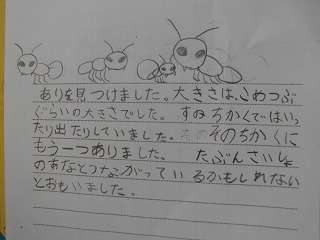 ありを見つけました。大きさは、こめつぶ
ぐらいの大きさでした。すのちかくではいっ
たり出たりしていました。そのちかくに
もう一つありました。たぶんさいしょ
のあなとつながっているかもしれない
とおもいました。